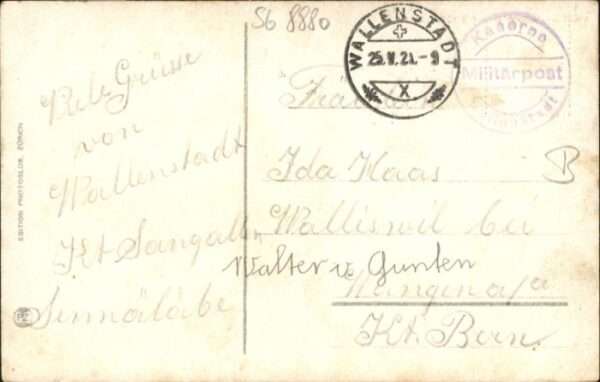 Sb 8880
WALLENSTADT
25.V.21.-9
X
Kaserne
Militärpost
Wallenstadt
Viele Grüsse
von
Wallenstadt
Kt Sangallen
Fräulein
Ida Haas
Walliswil bei
Walter v. Gunten
Wangen a/a
Kt. Bern.
B
EDITION PHOTOGLOB, ZÜRICH